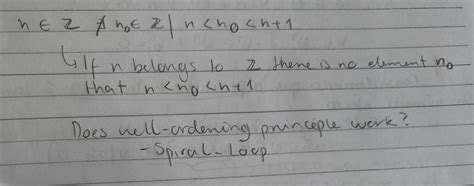 n ∈ ℤ ∄ n₀ ∈ ℤ | n < n₀ < n+1
↳ If n belongs to ℤ there is no element n₀
that n < n₀ < n+1
Does well-ordening princeple work?
- Spiral-Loop